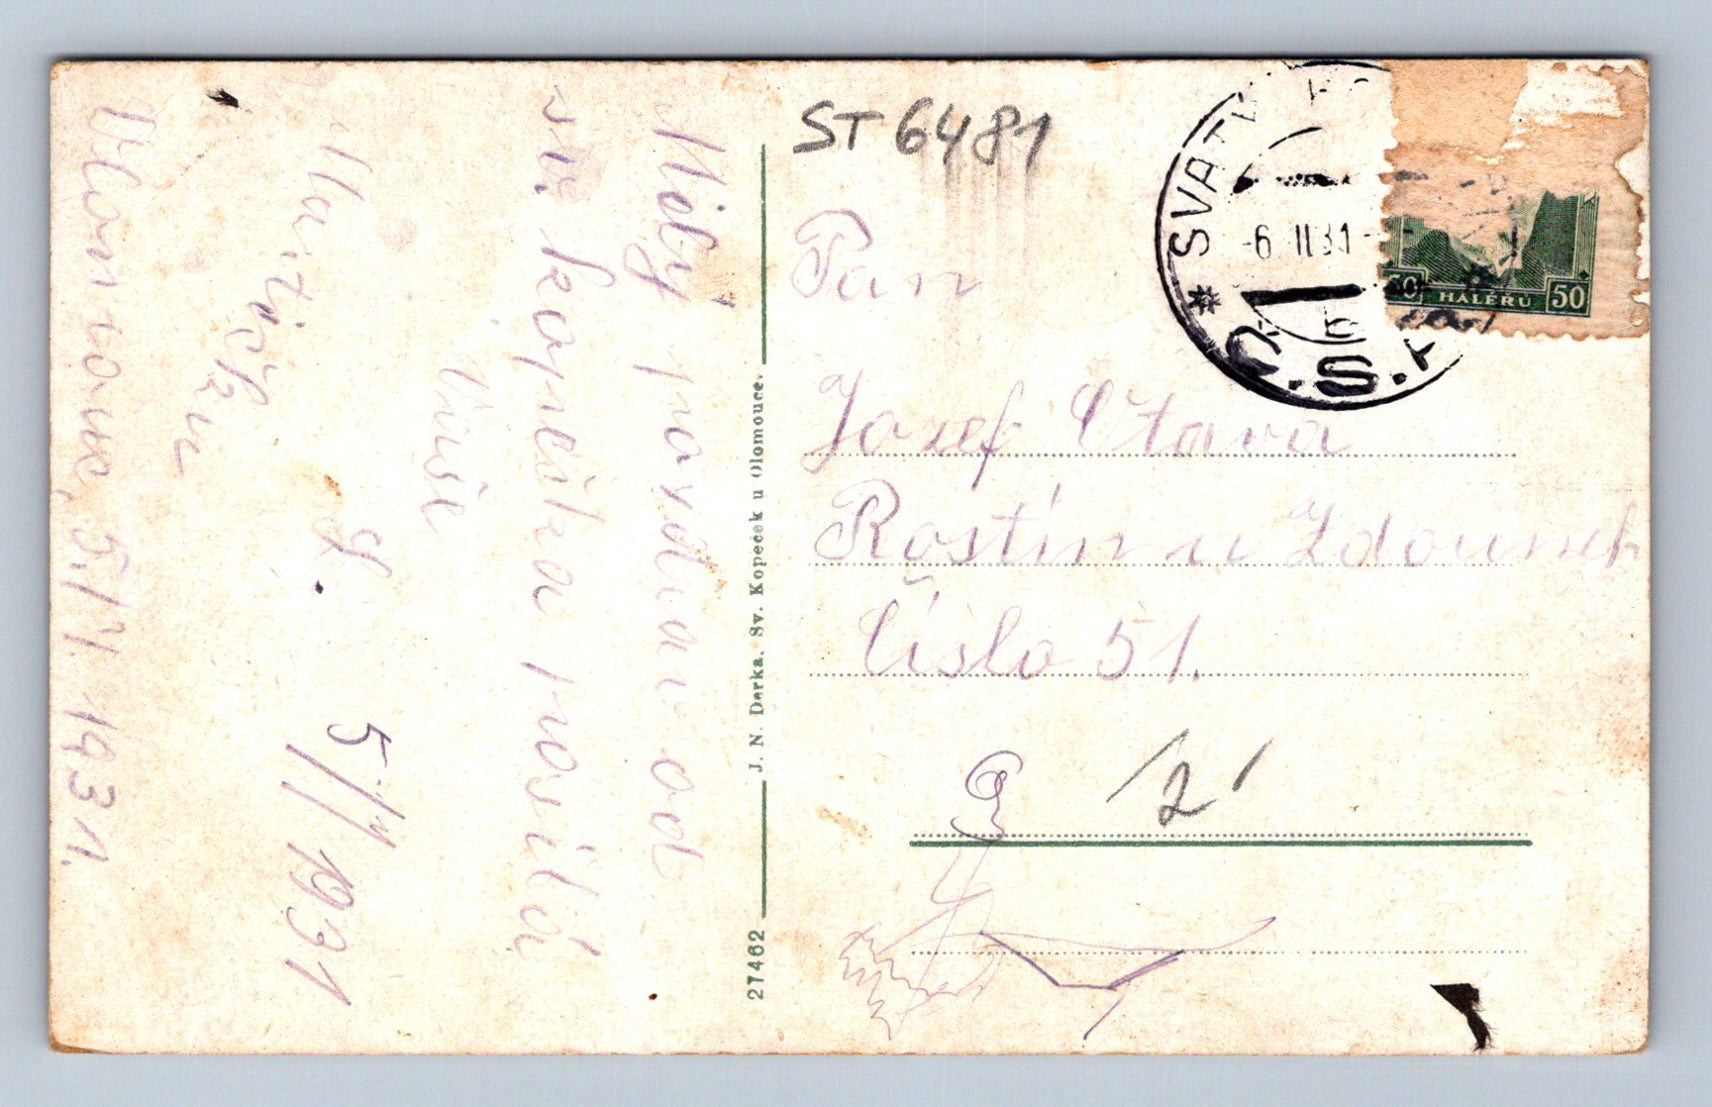 Milý pozdrav od
sv. kopečka posílá
Vaše
Mařičku
Y.
5/4 1931
Olomouc, 5./4. 1931.
J. N. Derka. Sv. Kopeček u Olomouce.
27462
ST 6481
SVATÝ
-6.II31-
Č.S.R.
50 HALÉŘŮ 50
Pan
Jozef Otava
Roštín u Zdounek
Číslo 51.
12'